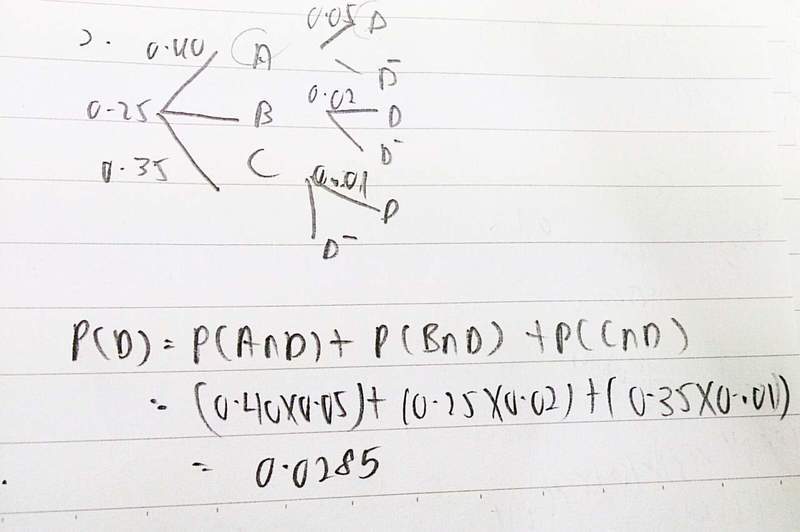 2. 0.40 A 0.05 D
D⁻
0.25 B 0.02 D
D⁻
0.35 C 0.01 D
D⁻
P(D) = P(A∩D) + P(B∩D) + P(C∩D)
= (0.40X0.05) + (0.25X0.02) + (0.35X0.01)
= 0.0285